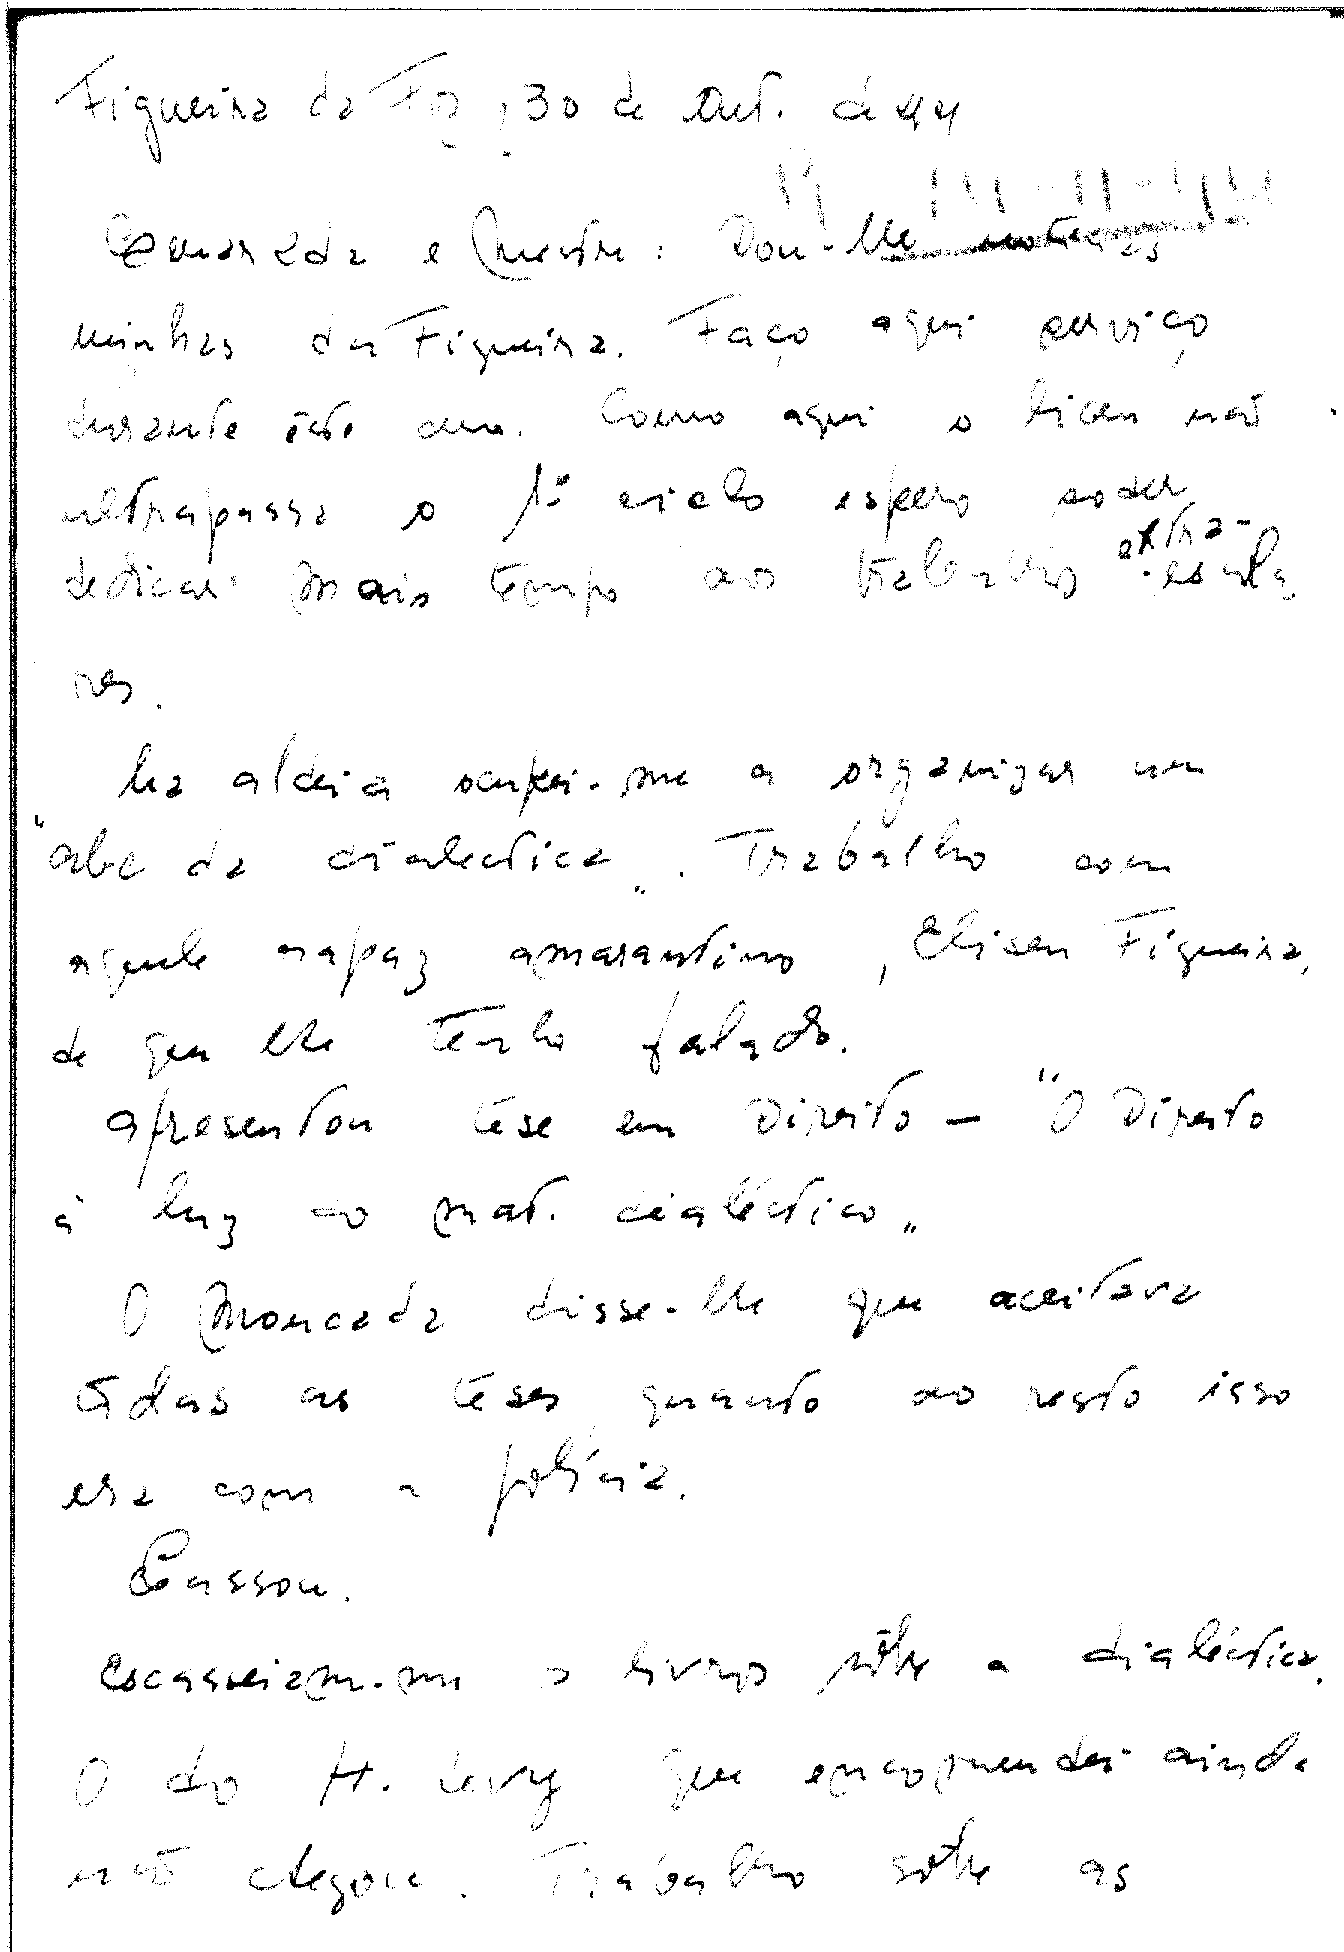 Figueira da Foz, 30 de Out. de 44
Camarada e Mestre: Dou-lhe notícias
minhas da Figueira. Faço aqui serviço
durante êste ano. Como aqui o liceu não
ultrapassa o 1º ciclo espero poder
dedicar mais tempo aos trabalhos extra-escola
res.
Na aldeia ocupei-me a organizar um
"abc da dialectica". Trabalho com
aquele rapaz amarantino, Eliseu Figueira,
de que lhe tenho falado.
Apresentou tese em Direito — "O Direito
à luz do mat. dialéctico"
O Moncada disse-lhe que aceitava
tôdas as teses quanto ao resto isso
era com a polícia.
Passou.
Escasseiam-me os livros sôbre a dialéctica.
O do H. Levy que encomendei ainda
não chegou. Trabalho sôbre as